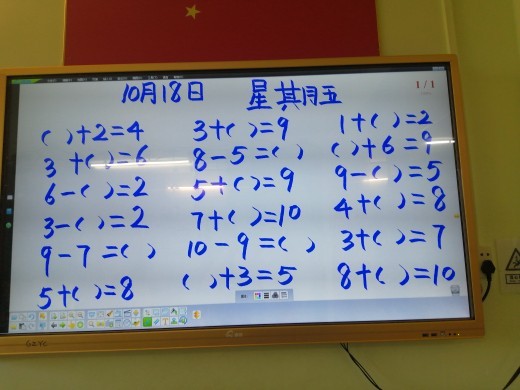 1 / 1
10月18日 星期五
( )+2=4 3+( )=9 1+( )=2
3+( )=6 8-5=( ) ( )+6=9
6-( )=2 5+( )=9 9-( )=5
3-( )=2 7+( )=10 4+( )=8
9-7=( ) 10-9=( ) 3+( )=7
5+( )=8 ( )+3=5 8+( )=10